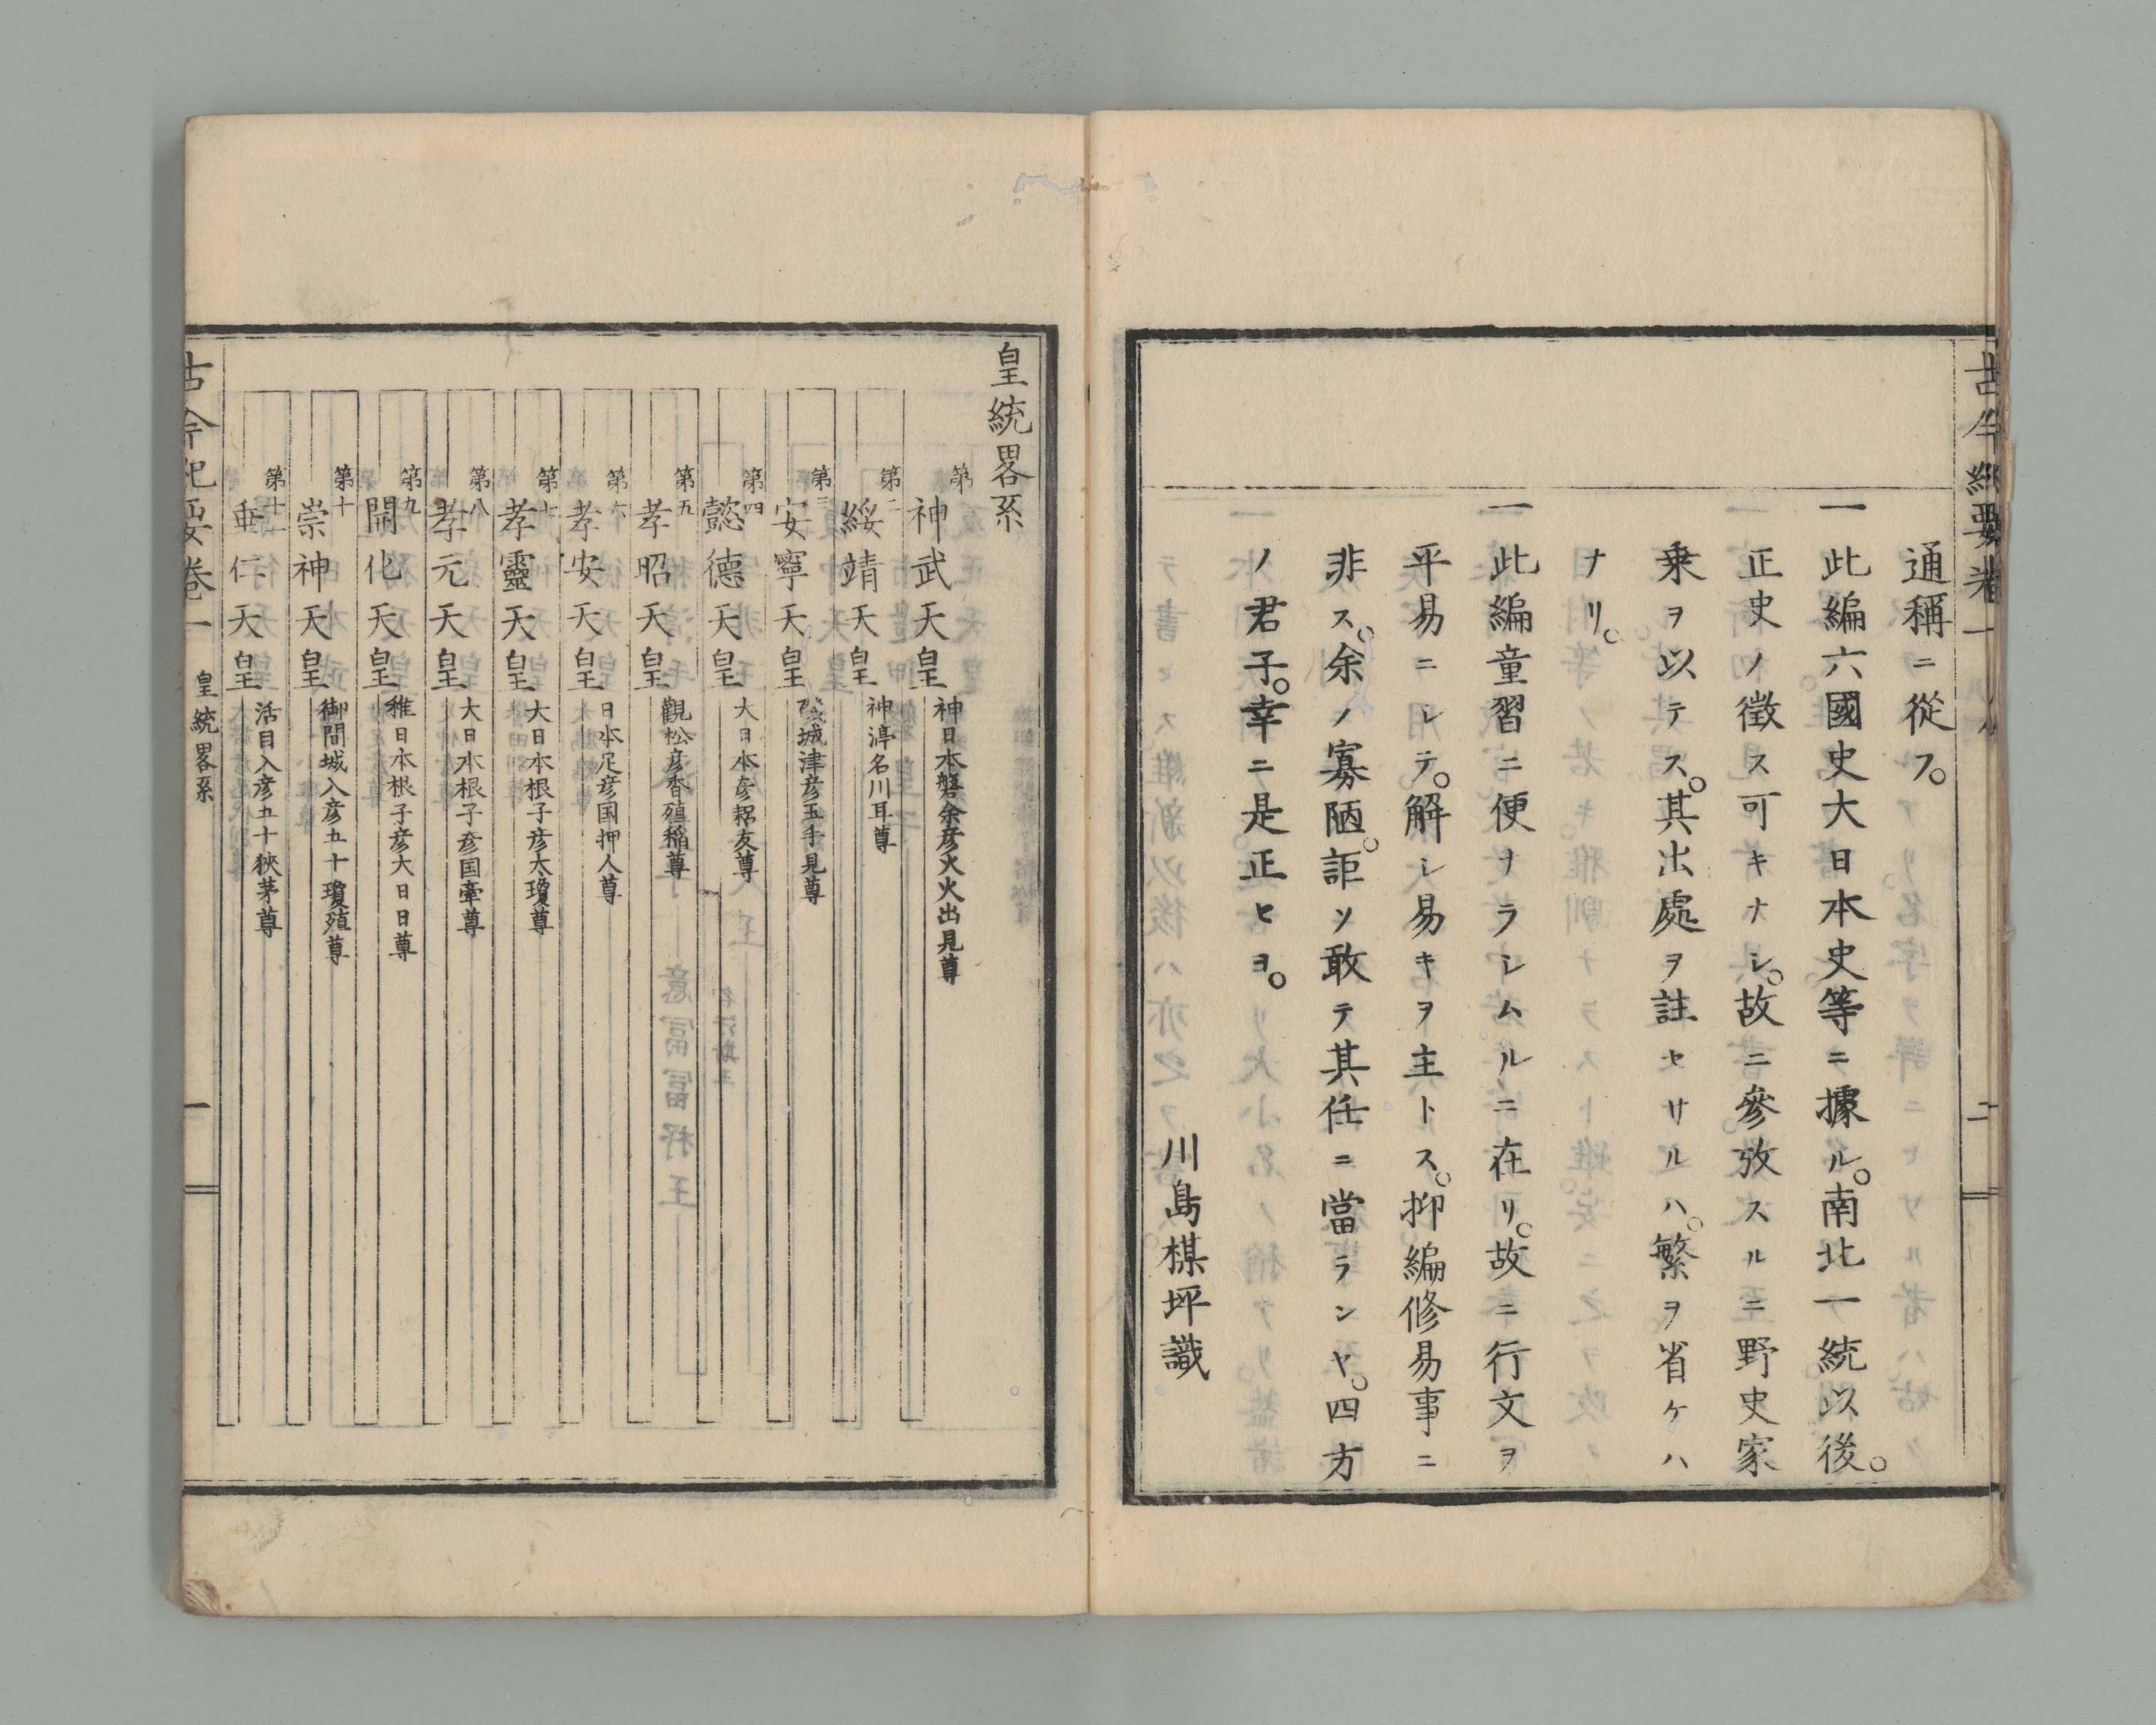 古今紀要卷一
二
通稱ニ從フ。
一此編六國史大日本史等ニ據ル。南北一統以後。
正史ノ徴ス可キナシ。故ニ參攷スルニ野史家
乗ヲ以テス。其出處ヲ註セサルハ。繁ヲ省ケハ
ナリ。
一此編童習ニ便ナラシムルニ在リ。故ニ行文ヲ
平易ニシテ。解シ易キヲ主トス。抑編修易事ニ
非ス。余ノ寡陋。詎ソ敢テ其任ニ當ランヤ。四方
ノ君子。幸ニ是正セヨ。
川島楳坪識
皇統畧系
第一
神武天皇 神日本磐余彦火火出見尊
第二
綏靖天皇 神渟名川耳尊
第三
安寧天皇 磯城津彦玉手見尊
第四
懿德天皇 大日本彦耜友尊
第五
孝昭天皇 觀松彦香殖稲尊
第六
孝安天皇 日本足彦国押人尊
第七
孝靈天皇 大日本根子彦太瓊尊
第八
孝元天皇 大日本根子彦国牽尊
第九
開化天皇 稚日本根子彦大日日尊
第十
崇神天皇 御間城入彦五十瓊殖尊
第十一
垂仁天皇 活目入彦五十狹茅尊
古今紀要卷一 皇統畧系 一